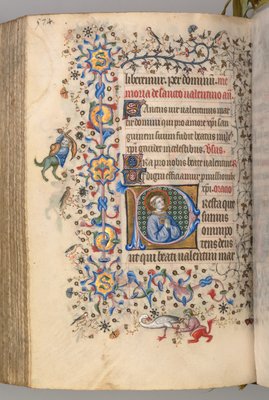 574.
liberemur. Per dominum. me
moria de sancto valentino añ.
Sanctus vir valentinus mar
tir domini qui pro amore xpi san
guinem suum fudit beatus mise
xpi gaudet in celestibus. Vsus.
Ora pro nobis beate valentine
Ut digni efficiamur pmissionib
xpi. oratio
Presta que
sumus
omnipo
tens deus
ut qui beati valentini mar